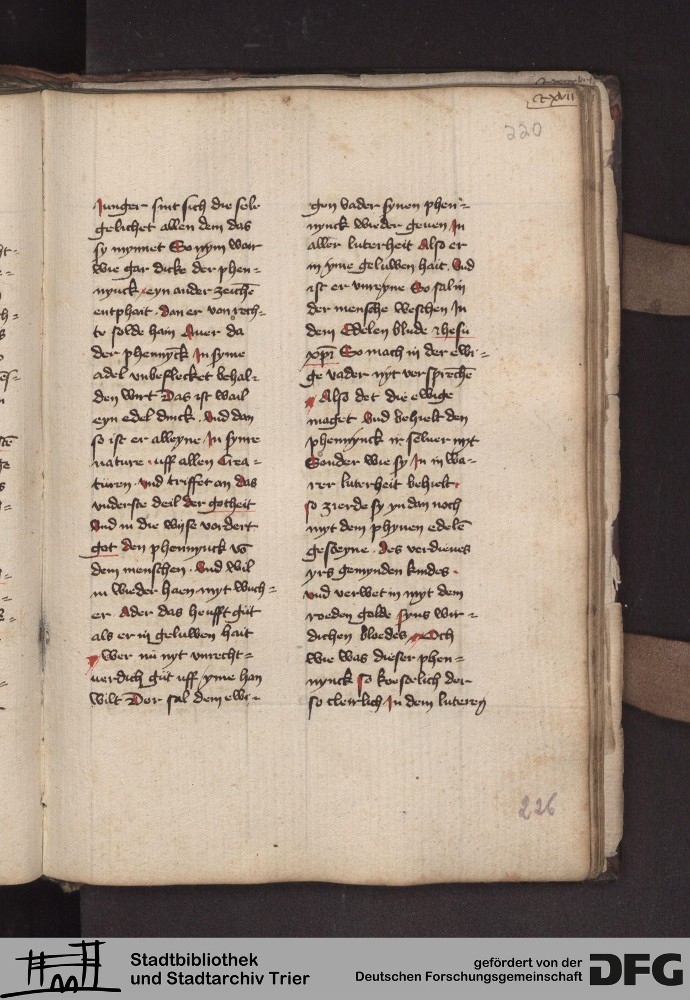 220
Junger sint sich die sele
gelichet allen dem das
sy mynnet So nym war
wie gar dicke der phen-
nynck eyn ander zeichē
entphait · dan er von rech-
te solde hain Auer da
der phennyck Jn syme
adel vnbeflecket behal-
den wirt Das ist wail
eyn edel dinck · vnd dan
so ist er alleyne Jn syme
nature · uff allen Crea-
turen · vnd triffet an das
vnderste deil der gotheit
vnd in die wyse vordert
got den phennynck vō
dem menschen · Vnd wil
in wieder haen myt wuch-
er · Ader das heufft gut
als er in geluwen hait
Wer nū nyt vnrecht-
uerdich gut uff yme han
wilt Der sal dem ewi-
gen vader synen phen-
nynck wieder geuen Jn
aller luterheit Also er
in yme geluwen hait · Vnd
ist er vnreyne So sal in
der mensche weschen Jn
dem Edelen blude Jhesu
xpī So mach in der ewi-
ge vader nyt versprechē
Also det die ewige
maget Vnd behielt den
phennynck in selver nyt
Sonder wie sy Jn in wa-
rer luterheit behielt
so zierde sy yn dan noch
myt dem phynen edelē
gesteyne · des verdienes
yrs gemynden kindes ·
vnd verwet in myt dem
roeden golde syns wir-
dichen bloedes Och
wie was dieser phen-
nynck so koestelich der
so clerlich Jn dem luteren
226
Stadtbibliothek
und Stadtarchiv Trier
gefördert von der
Deutschen Forschungsgemeinschaft
DFG